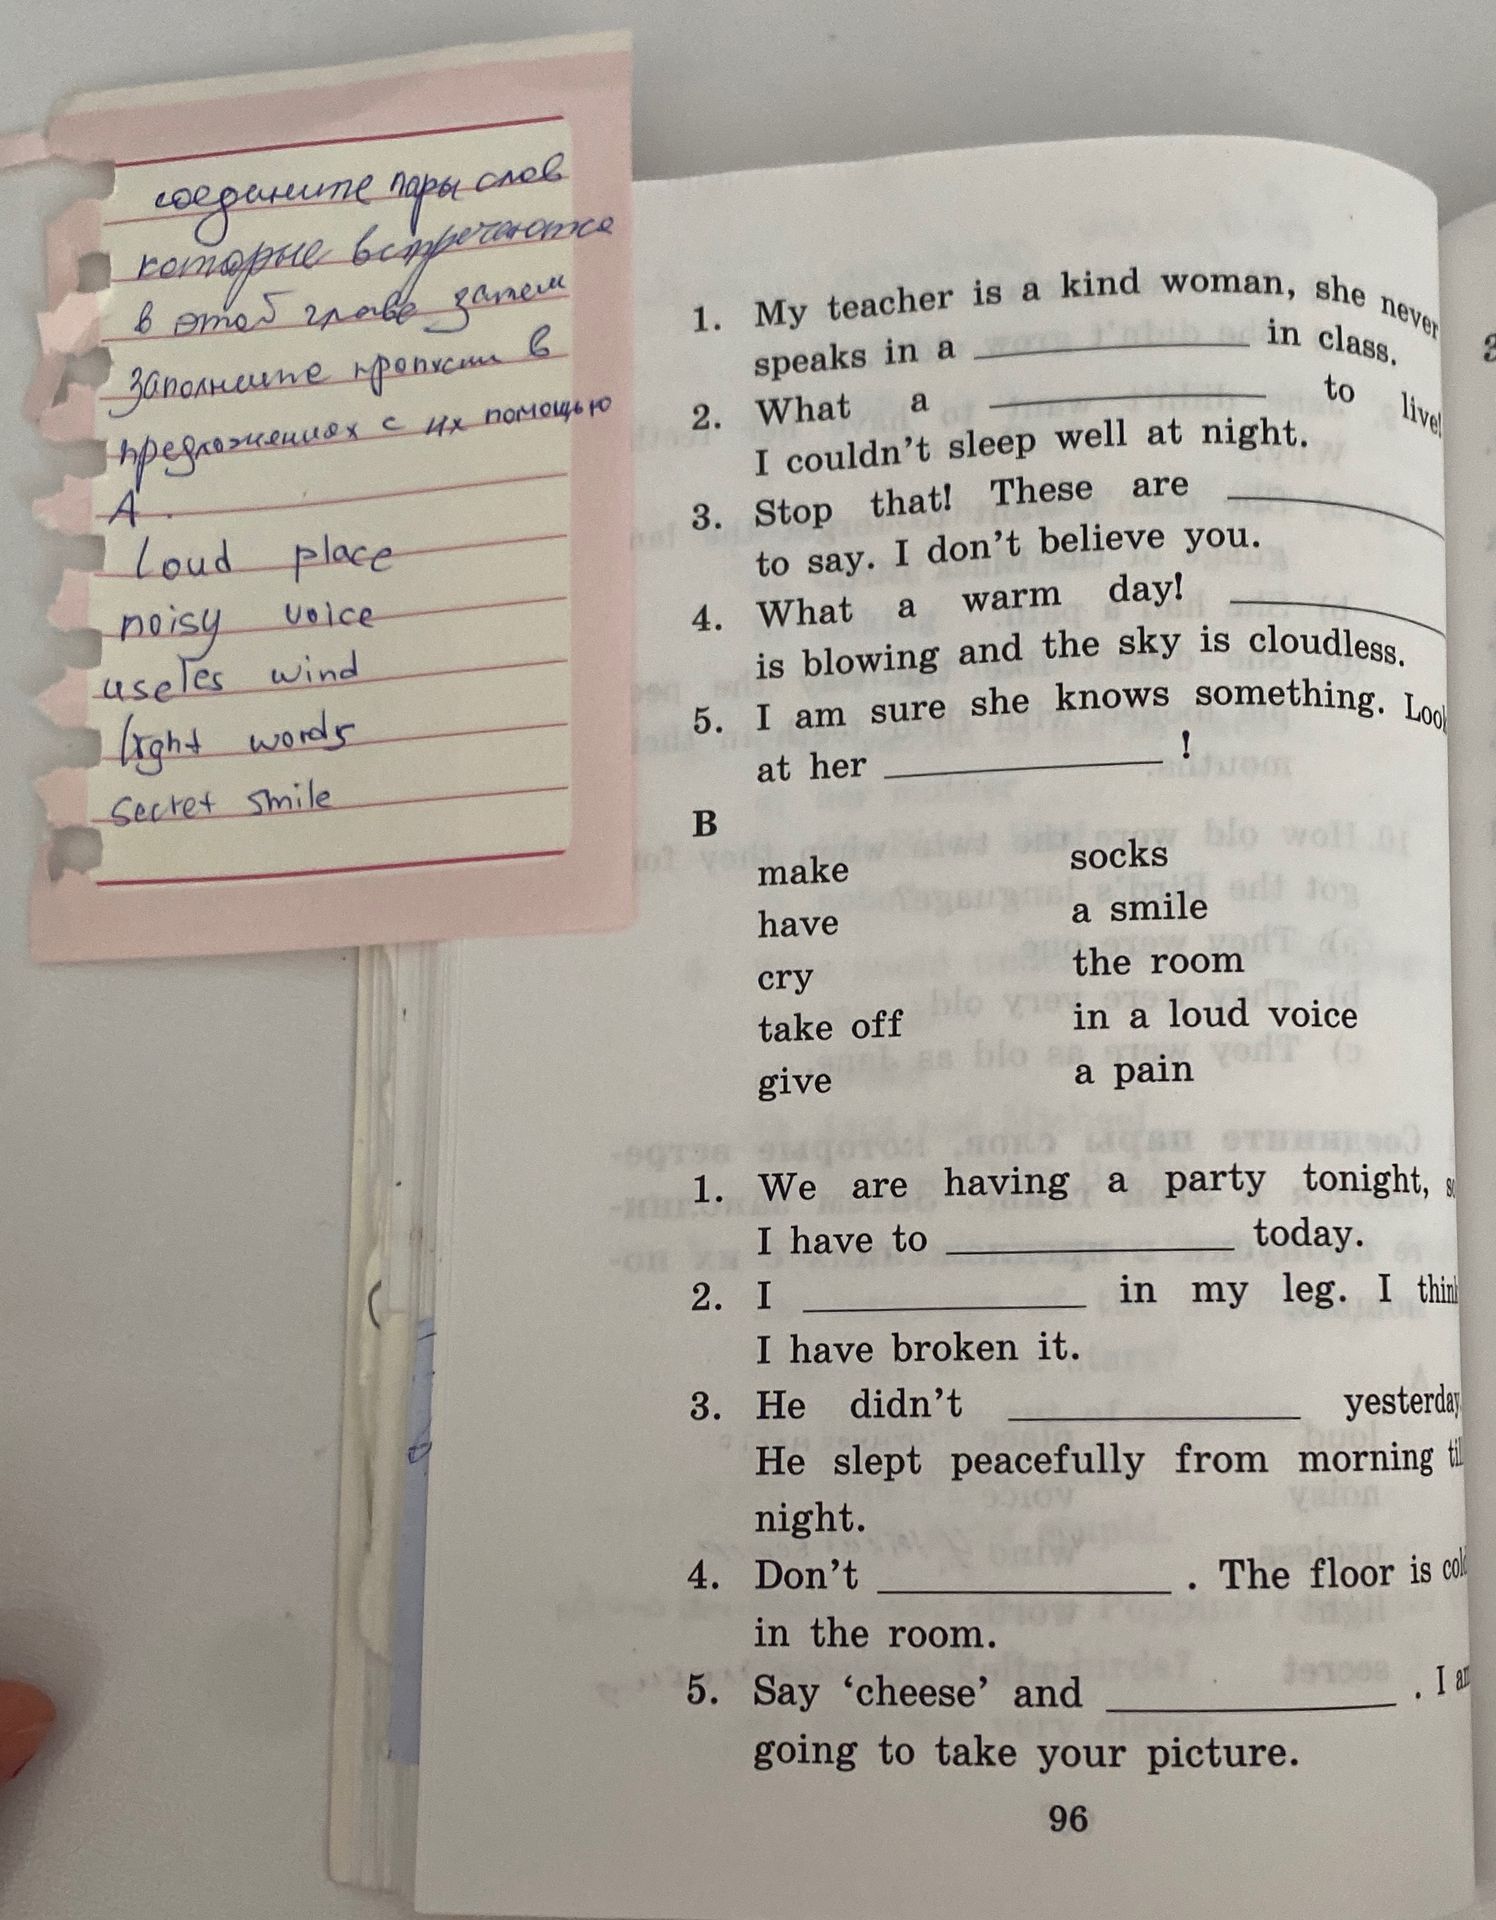 соедините пары слов
которые встречаются
в этой главе затем
заполните пропуски в
предложениях с их помощью
A.
loud place
noisy voice
useles wind
light words
secret smile
1. My teacher is a kind woman, she never
speaks in a ____________ in class.
2. What a ____________ to live!
I couldn't sleep well at night.
3. Stop that! These are ____________
to say. I don't believe you.
4. What a warm day! ____________
is blowing and the sky is cloudless.
5. I am sure she knows something. Look
at her ____________ !
B
make socks
have a smile
cry the room
take off in a loud voice
give a pain
1. We are having a party tonight,
I have to ____________ today.
2. I ____________ in my leg. I think
I have broken it.
3. He didn't ____________ yesterday
He slept peacefully from morning
night.
4. Don't ____________ . The floor is cold
in the room.
5. Say ‘cheese’ and ____________ . I am
going to take your picture.
96